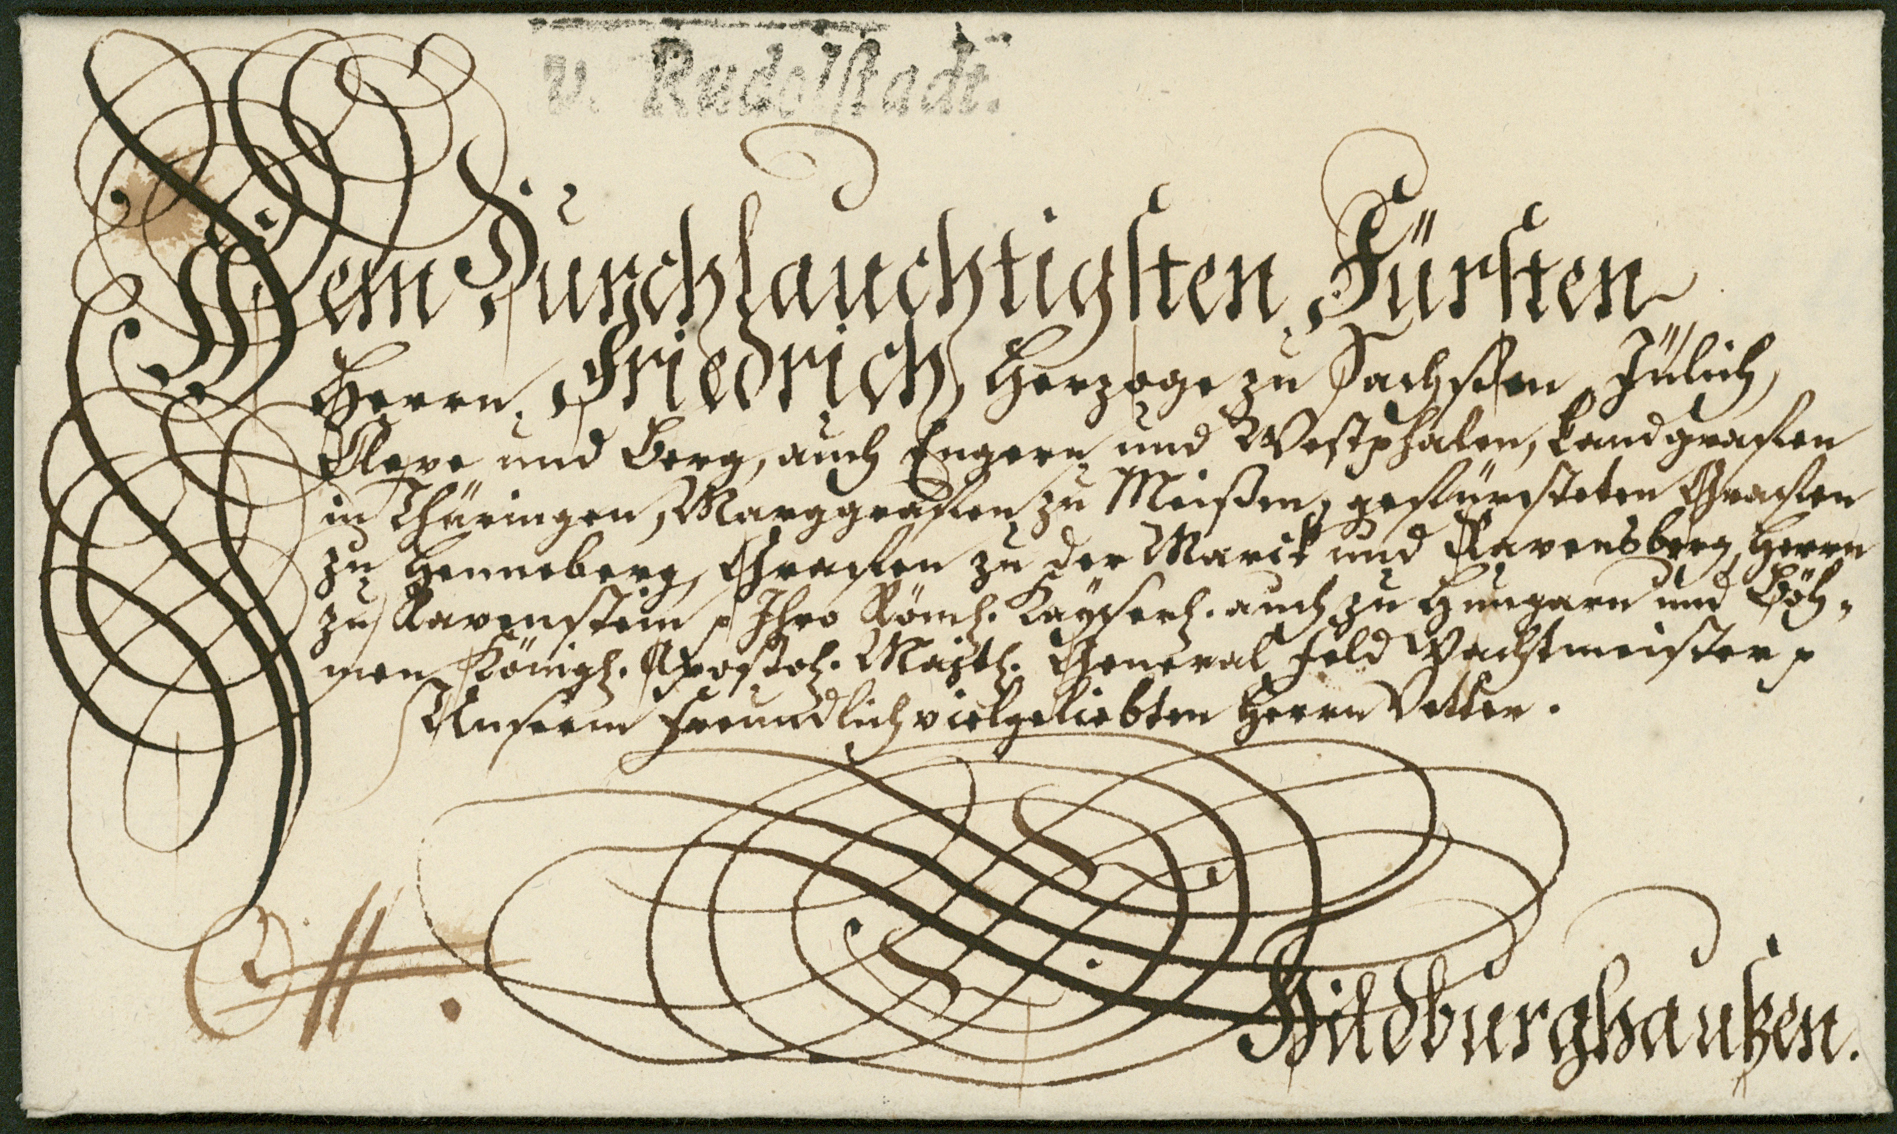 v. Rudolstadt.
Dem Durchlauchtigsten Fürsten
Herrn Friedrich, Herzoge zu Sachsen, Jülich,
Cleve und Berg, auch Engern und Westphalen, Landgrafen
in Thüringen, Marggrafen zu Meißen, gefürsteten Grafen
zu Henneberg, Grafen zu der Marck und Ravensberg, Herrn
zu Ravenstein p Ihro Römh. Kayserl. auch zu Hungarn und Böh-
men Königl. Apostol. Maytt. General Feld Wachtmeister p
Unserm freundlich vielgeliebten Herrn Vetter.
Hildburghaußen.